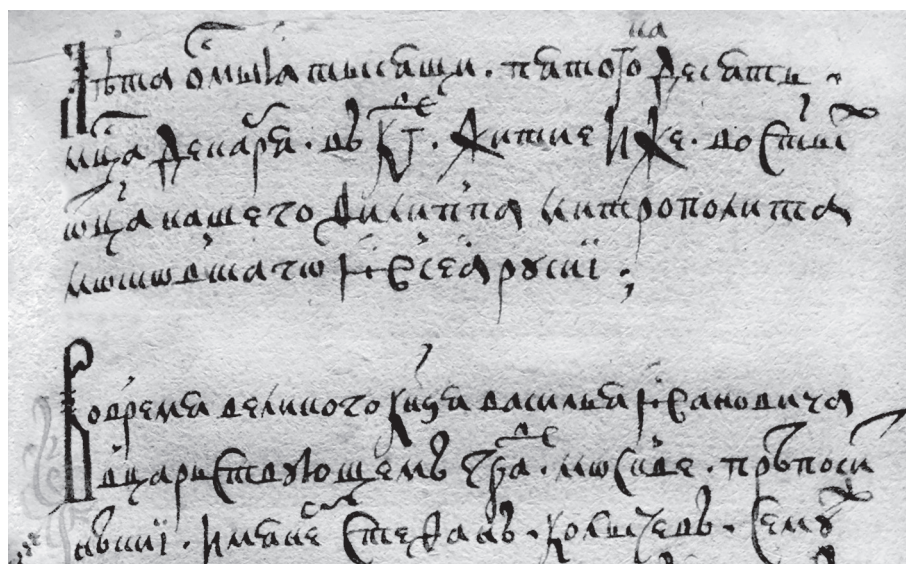 Лѣта осмыѧ тысѧщи · пѧтогона десѧть ·
мц҃а декабрѧ · въ к҃г де · житие иже · во ст҃ых
ѡц҃а нашего филиппа митрополита
московскаго и всеѧ русиї ;
Во времѧ великого кнѧзѧ васильѧ ивановича
в царьствующемъ граде · москве ·
имѧнем стефанъ · колычевъ · сему